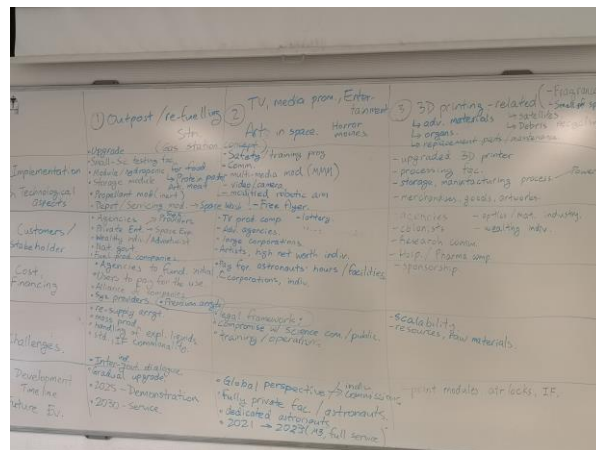 ① Outpost / re-fuelling
Stn.
(gas station concept)
② TV, media prom., Entertainment
Art, in space. Horror
movies
③ 3D printing-related
↳ adv. materials ↳ satellites
↳ organs. ↳ Debris
↳ replacement parts/maintenance
Implementation
Technological
aspects
• Upgrade
• Small-Sc testing fac.
• Module/hydroponic for food
• Storage module
• Propellant mod
• Depot/Servicing mod → Space
/training prog
• Comm.
multi-media mod (MMM)
- video/camera
- modified robotic arm
- Free flyer.
- upgraded 3D printer
- processing fac.
- storage, manufacturing process
- merchandise, goods, artworks.
Customers/
stakeholder
• Agencies
• Private Ent. → Space Exp.
• Wealthy indiv/Adventurist
• Nat govt.
• Fuel prod companies
• TV prod comp - lottery.
• Adv. agencies
• large corporations
• Artists, high net worth indiv.
- agencies
- colonists - wealthy indiv.
- Research comm.
Cost,
Financing
• Agencies to fund
• Users to pay for the use.
• Alliance of companies
• Sys providers
• Pay for astronauts' hours/facilities
corporations, indiv.
- sponsorship
Challenges.
• re-supply
• mass prod.
• handling of expl. liquids
• std. IF commonality.
legal framework
• compromise w/ science com/public.
• training/operations
- scalability
- resources, Raw materials.
Development
Timeline
Future Ev.
dialogue
• gradual upgrade
• 2025 - Demonstration
• 2030 - service.
• Global perspective
• fully private fac/astronauts
• dedicated astronauts
• 2021 → 2023
- print modules air locks, IF.